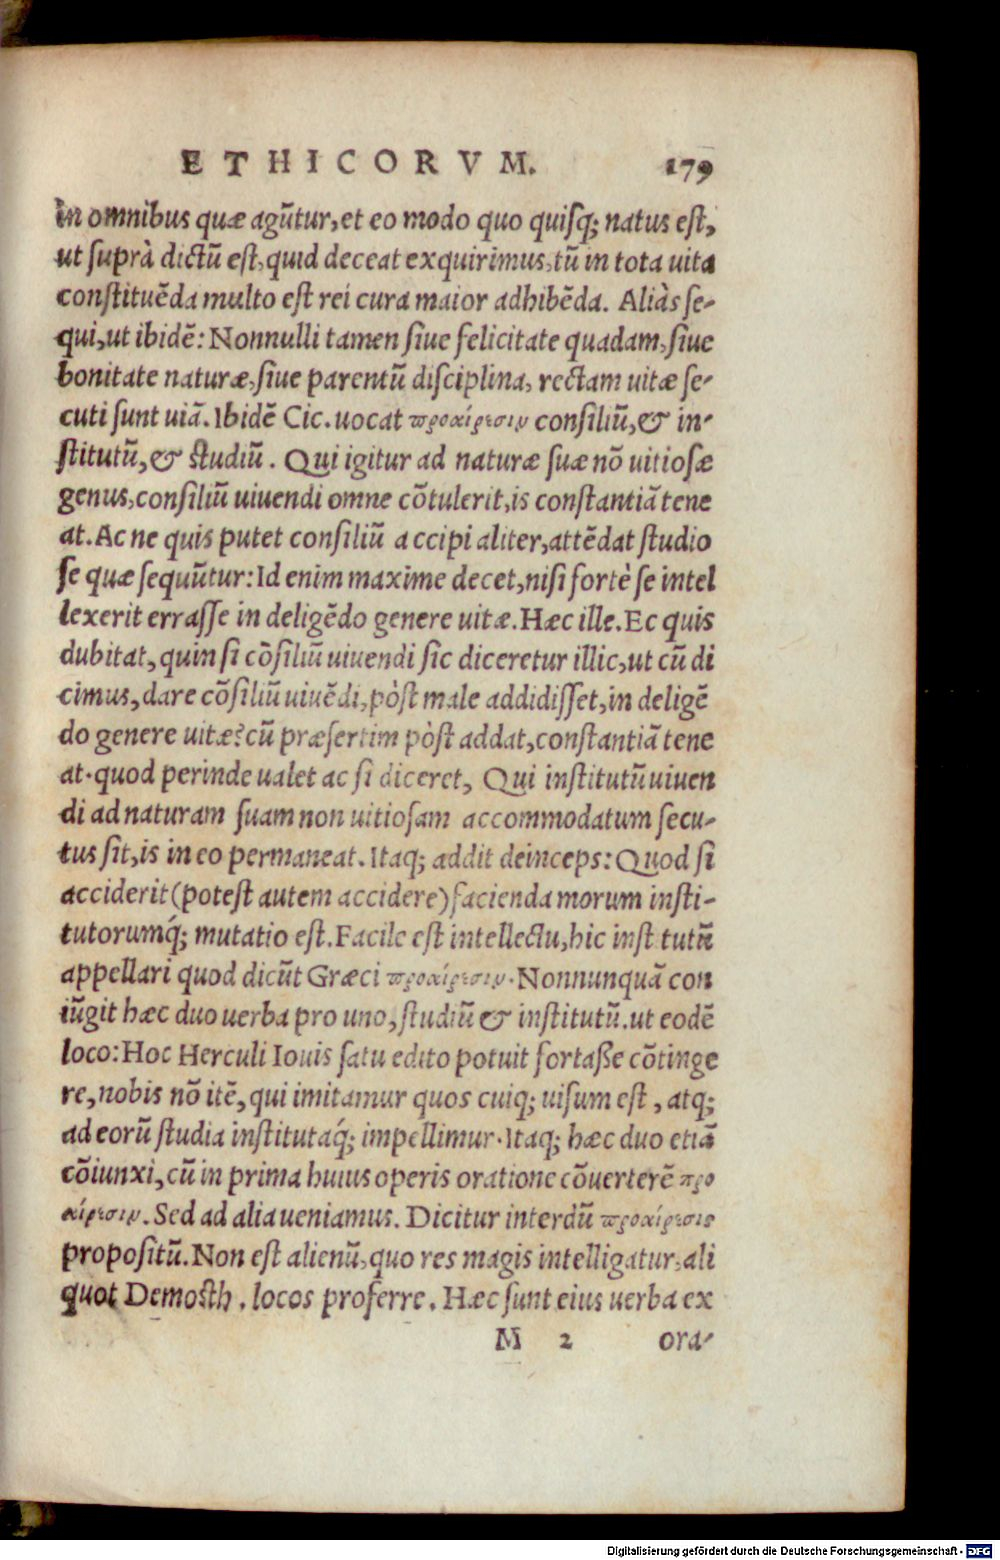 ETHICORVM. 179
In omnibus quæ agũtur, et eo modo quo quisq; natus est,
ut suprà dictũ est, quid deceat exquirimus, tũ in tota uita
constituẽda multo est rei cura maior adhibẽda. Aliàs se-
qui, ut ibidẽ: Nonnulli tamen siue felicitate quadam, siue
bonitate naturæ, siue parentũ disciplina, rectam uitæ se-
cuti sunt uiã. Ibidẽ Cic. uocat προαίρεσιν consiliũ, & in-
stitutũ, & studiũ. Qui igitur ad naturæ suæ nõ uitiosæ
genus, consiliũ uiuendi omne cõtulerit, is constantiã tene
at. Ac ne quis putet consiliũ accipi aliter, attẽdat studio
se quæ sequũtur: Id enim maxime decet, nisi fortè se intel
lexerit errasse in deligẽdo genere uitæ. Hæc ille. Ec quis
dubitat, quin si cõsiliũ uiuendi sic diceretur illic, ut cũ di
cimus, dare cõsiliũ uiuẽdi, pòst male addidisset, in deligẽ
do genere uitæ? cũ præsertim pòst addat, constantiã tene
at. quod perinde ualet ac si diceret, Qui institutũ uiuen
di ad naturam suam non uitiosam accommodatum secu-
tus sit, is in eo permaneat. Itaq; addit deinceps: Quod si
acciderit (potest autem accidere) facienda morum insti-
tutorumq́; mutatio est. Facile est intellectu, hic inst tutũ
appellari quod dicũt Græci προαίρεσιν. Nonnunquã con
iũgit hæc duo uerba pro uno, studiũ & institutũ. ut eodẽ
loco: Hoc Herculi Iouis satu edito potuit fortaße cõtinge
re, nobis nõ itẽ, qui imitamur quos cuiq; uisum est, atq;
ad eorũ studia institutaq́; impellimur. Itaq; hæc duo etiã
cõiunxi, cũ in prima huius operis oratione cõuerterẽ προ
αίρεσιν. Sed ad alia ueniamus. Dicitur interdũ προαίρεσις
propositũ. Non est alienũ, quo res magis intelligatur, ali
quot Demosth. locos proferre. Hæc sunt eius uerba ex
M 2 ora-
Digitalisierung gefördert durch die Deutsche Forschungsgemeinschaft - DFG